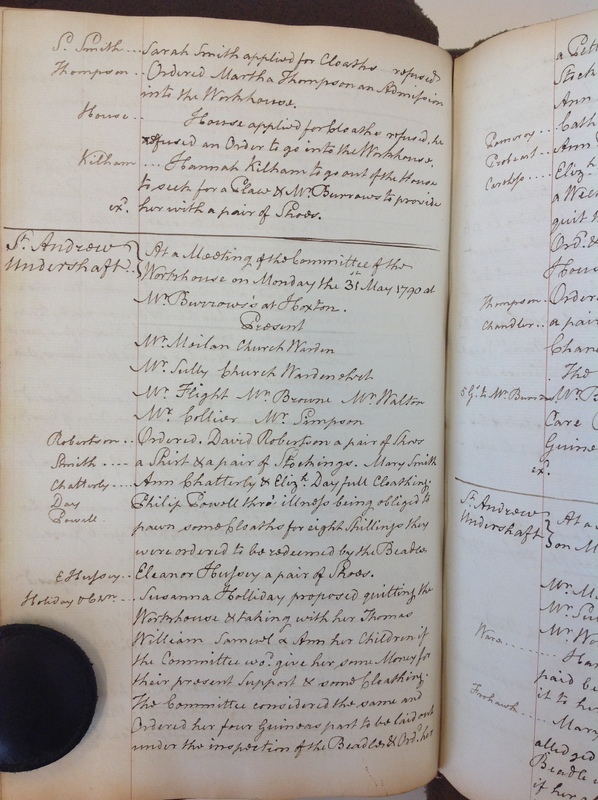 S. Smith... Sarah Smith applied for Cloaths refused
Thompson.. Ordered Martha Thompson an Admission
into the Workhouse.
House.. House applied for Cloaths refused. he
refused an Order to go into the Workhouse.
Kilham... Hannah Kilham to go out of the House
to seek for a Place & Mr. Burrows to provide
ex. her with a pair of Shoes.
St. Andrew At a Meeting of the Committee of the
Undershaft. Workhouse on Monday the 31st May 1790 at
Mr. Burrows's at Hoxton.
Present
Mr. Meilan Church Warden
Mr. Sully Church Warden elect
Mr. Flight Mr. Browne Mr. Walton
Mr. Collier Mr. Simpson
Robertson.. Ordered. David Robertson a pair of Shoes
Smith.... a Shirt & a pair of Stockings. Mary Smith
Chatterly... Ann Chatterly & Elizh. Day full Cloathing.
Day Philip Powell thro' illness being obliged to
Powell. pawn some Cloaths for eight Shillings they
were ordered to be redeemed by the Beadle.
E Hersey.. Eleanor Hersey a pair of Shoes.
Holiday & Chn... Susanna Holliday proposed quitting the
Workhouse & taking with her Thomas
William Samuel & Ann her Children if
the Committee wod. give her some Money for
their present Support & some Cloathing.
The Committee considered the same and
Ordered her four Guineas part to be laid out
under the inspection of the Beadles & Ord. her
a Pett
Stock
Ann
Pomroy... Cath
Probert.. Ann
Careless.... Eliz
a Week
quit t
Ord. &
Hous
Thompson.. Ordere
Chandler.. a pair
Chan
The
5 Gs. to Mr. Burrows Mr. B
Care
Guine
ex.
St. Andrew At a
Undershaft on M
Mr. M
Mr. Su
Mr. Wo
Ware...... Har
paid be
it to he
Frohawk.... Mary
alledged
Beadle
if her